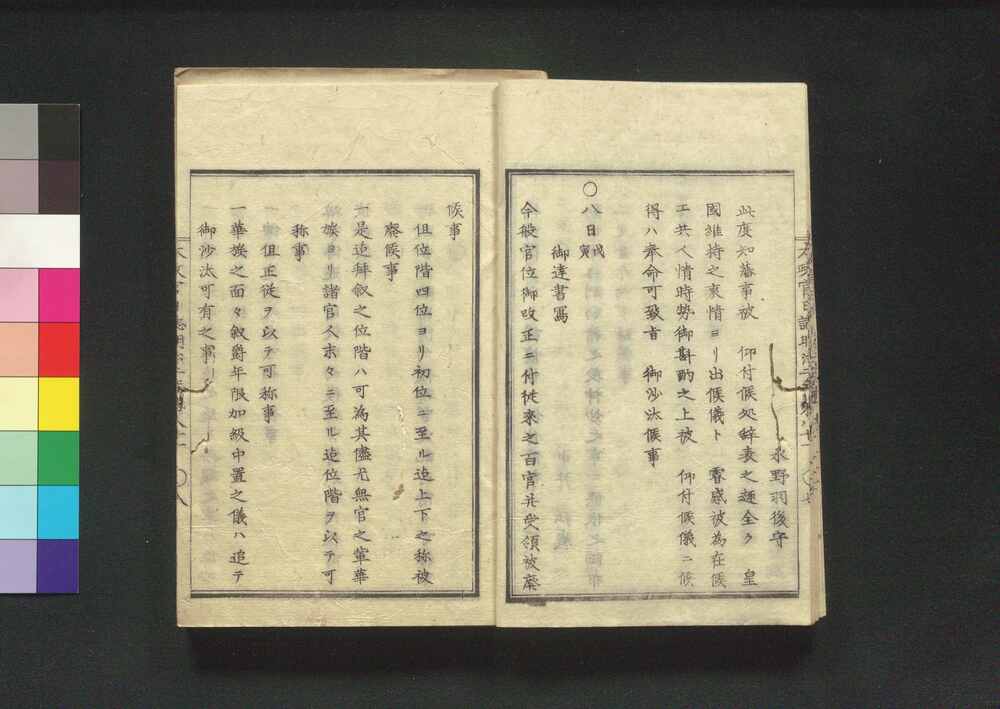 永野羽後守
此度知藩事被　仰付候処辞表之趣全ク　皇
國維持之衷情ヨリ出候儀ト　睿感被為在候
エ共人情時勢御斟酌之上被　仰付候儀ニ候
得ハ奉命可致旨　御沙汰候事
〇八日戊寅
御達書写
今般官位御改正ニ付従来之百官并受領被廃
候事
但位階四位ヨリ初位ニ至ル迄上下之称被
廃候事
一是迄拝叙之位階ハ可為其儘尤無官之輩華
族ヨリ諸官人末々ニ至ル迄位階ヲ以テ可
称事
但正従ヲ以テ可称事
一華族之面々叙爵年限加級中置之儀ハ追テ
御沙汰可有之事